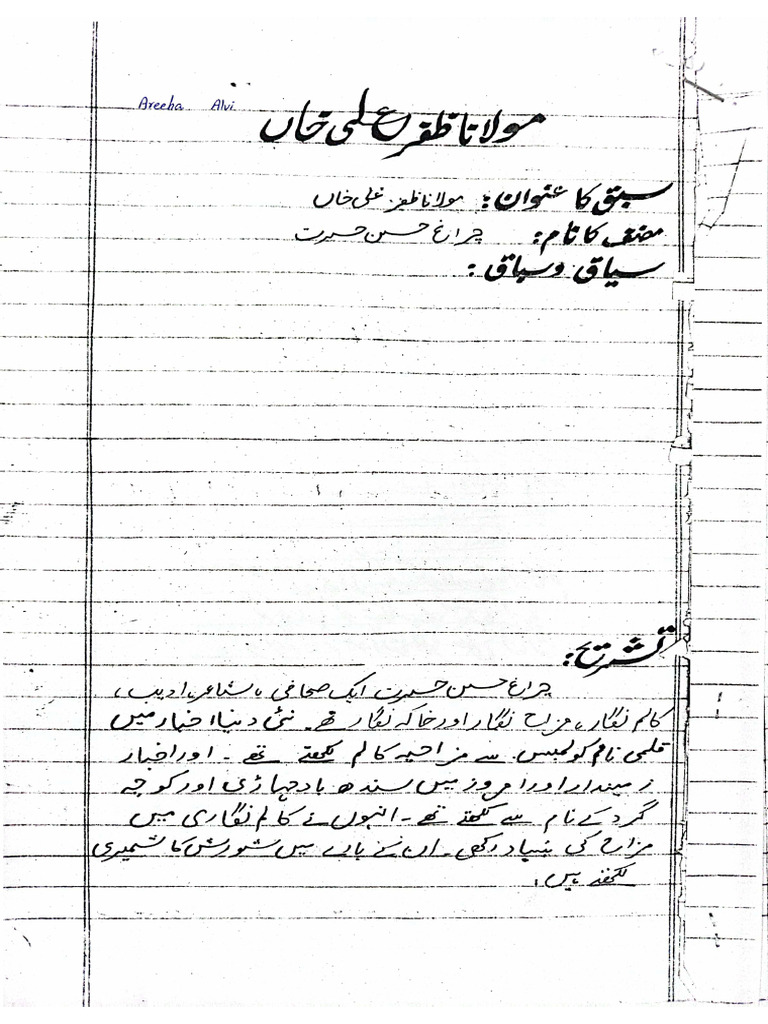 Areeba Alvi
مولانا ظفر علی خاں
سبق کا عنوان: مولانا ظفر علی خاں
مصنف کا نام: چراغ حسن حسرت
سیاق و سباق:
تشریح:
چراغ حسن حسرت ایک صحافی، شاعر، ادیب،
کالم نگار، مزاح نگار اور خاکہ نگار تھے۔ نئی دنیا اخبار میں
قلمی نام کولمبس سے مزاحیہ کالم لکھتے تھے۔ اور اخبار
زمیندار اور امروز میں سندھ باد جہازی اور کوچہ
گرد کے نام سے لکھتے تھے۔ انہوں نے کالم نگاری میں
مزاح کی بنیاد رکھی۔ ان کے بارے میں شورش کاشمیری
لکھتے ہیں: